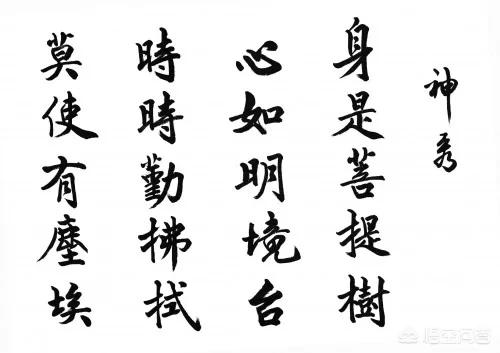 神秀
身是菩提樹
心如明境台
時時勤拂拭
莫使有塵埃
悟空问答